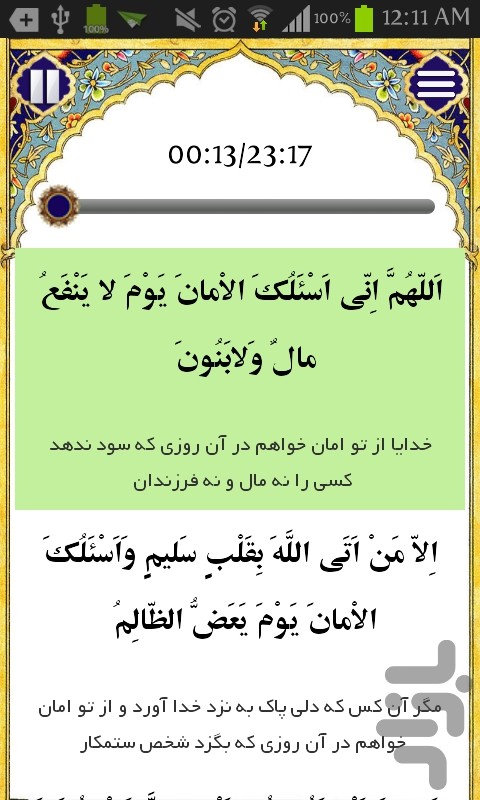 100%
100%
12:11 AM
00:13/23:17
اَللّهُمَّ اِنّی اَسْئَلُکَ الاْمانَ یَوْمَ لا یَنْفَعُ
مالٌ وَلابَنُونَ
خدایا از تو امان خواهم در آن روزی که سود ندهد
کسی را نه مال و نه فرزندان
اِلاّ مَنْ اَتَی اللَّهَ بِقَلْبٍ سَلیمٍ وَاَسْئَلُکَ
الاْمانَ یَوْمَ یَعَضُّ الظّالِمُ
مگر آن کس که دلی پاک به نزد خدا آورد و از تو امان
خواهم در آن روزی که بگزد شخص ستمکار
بازار